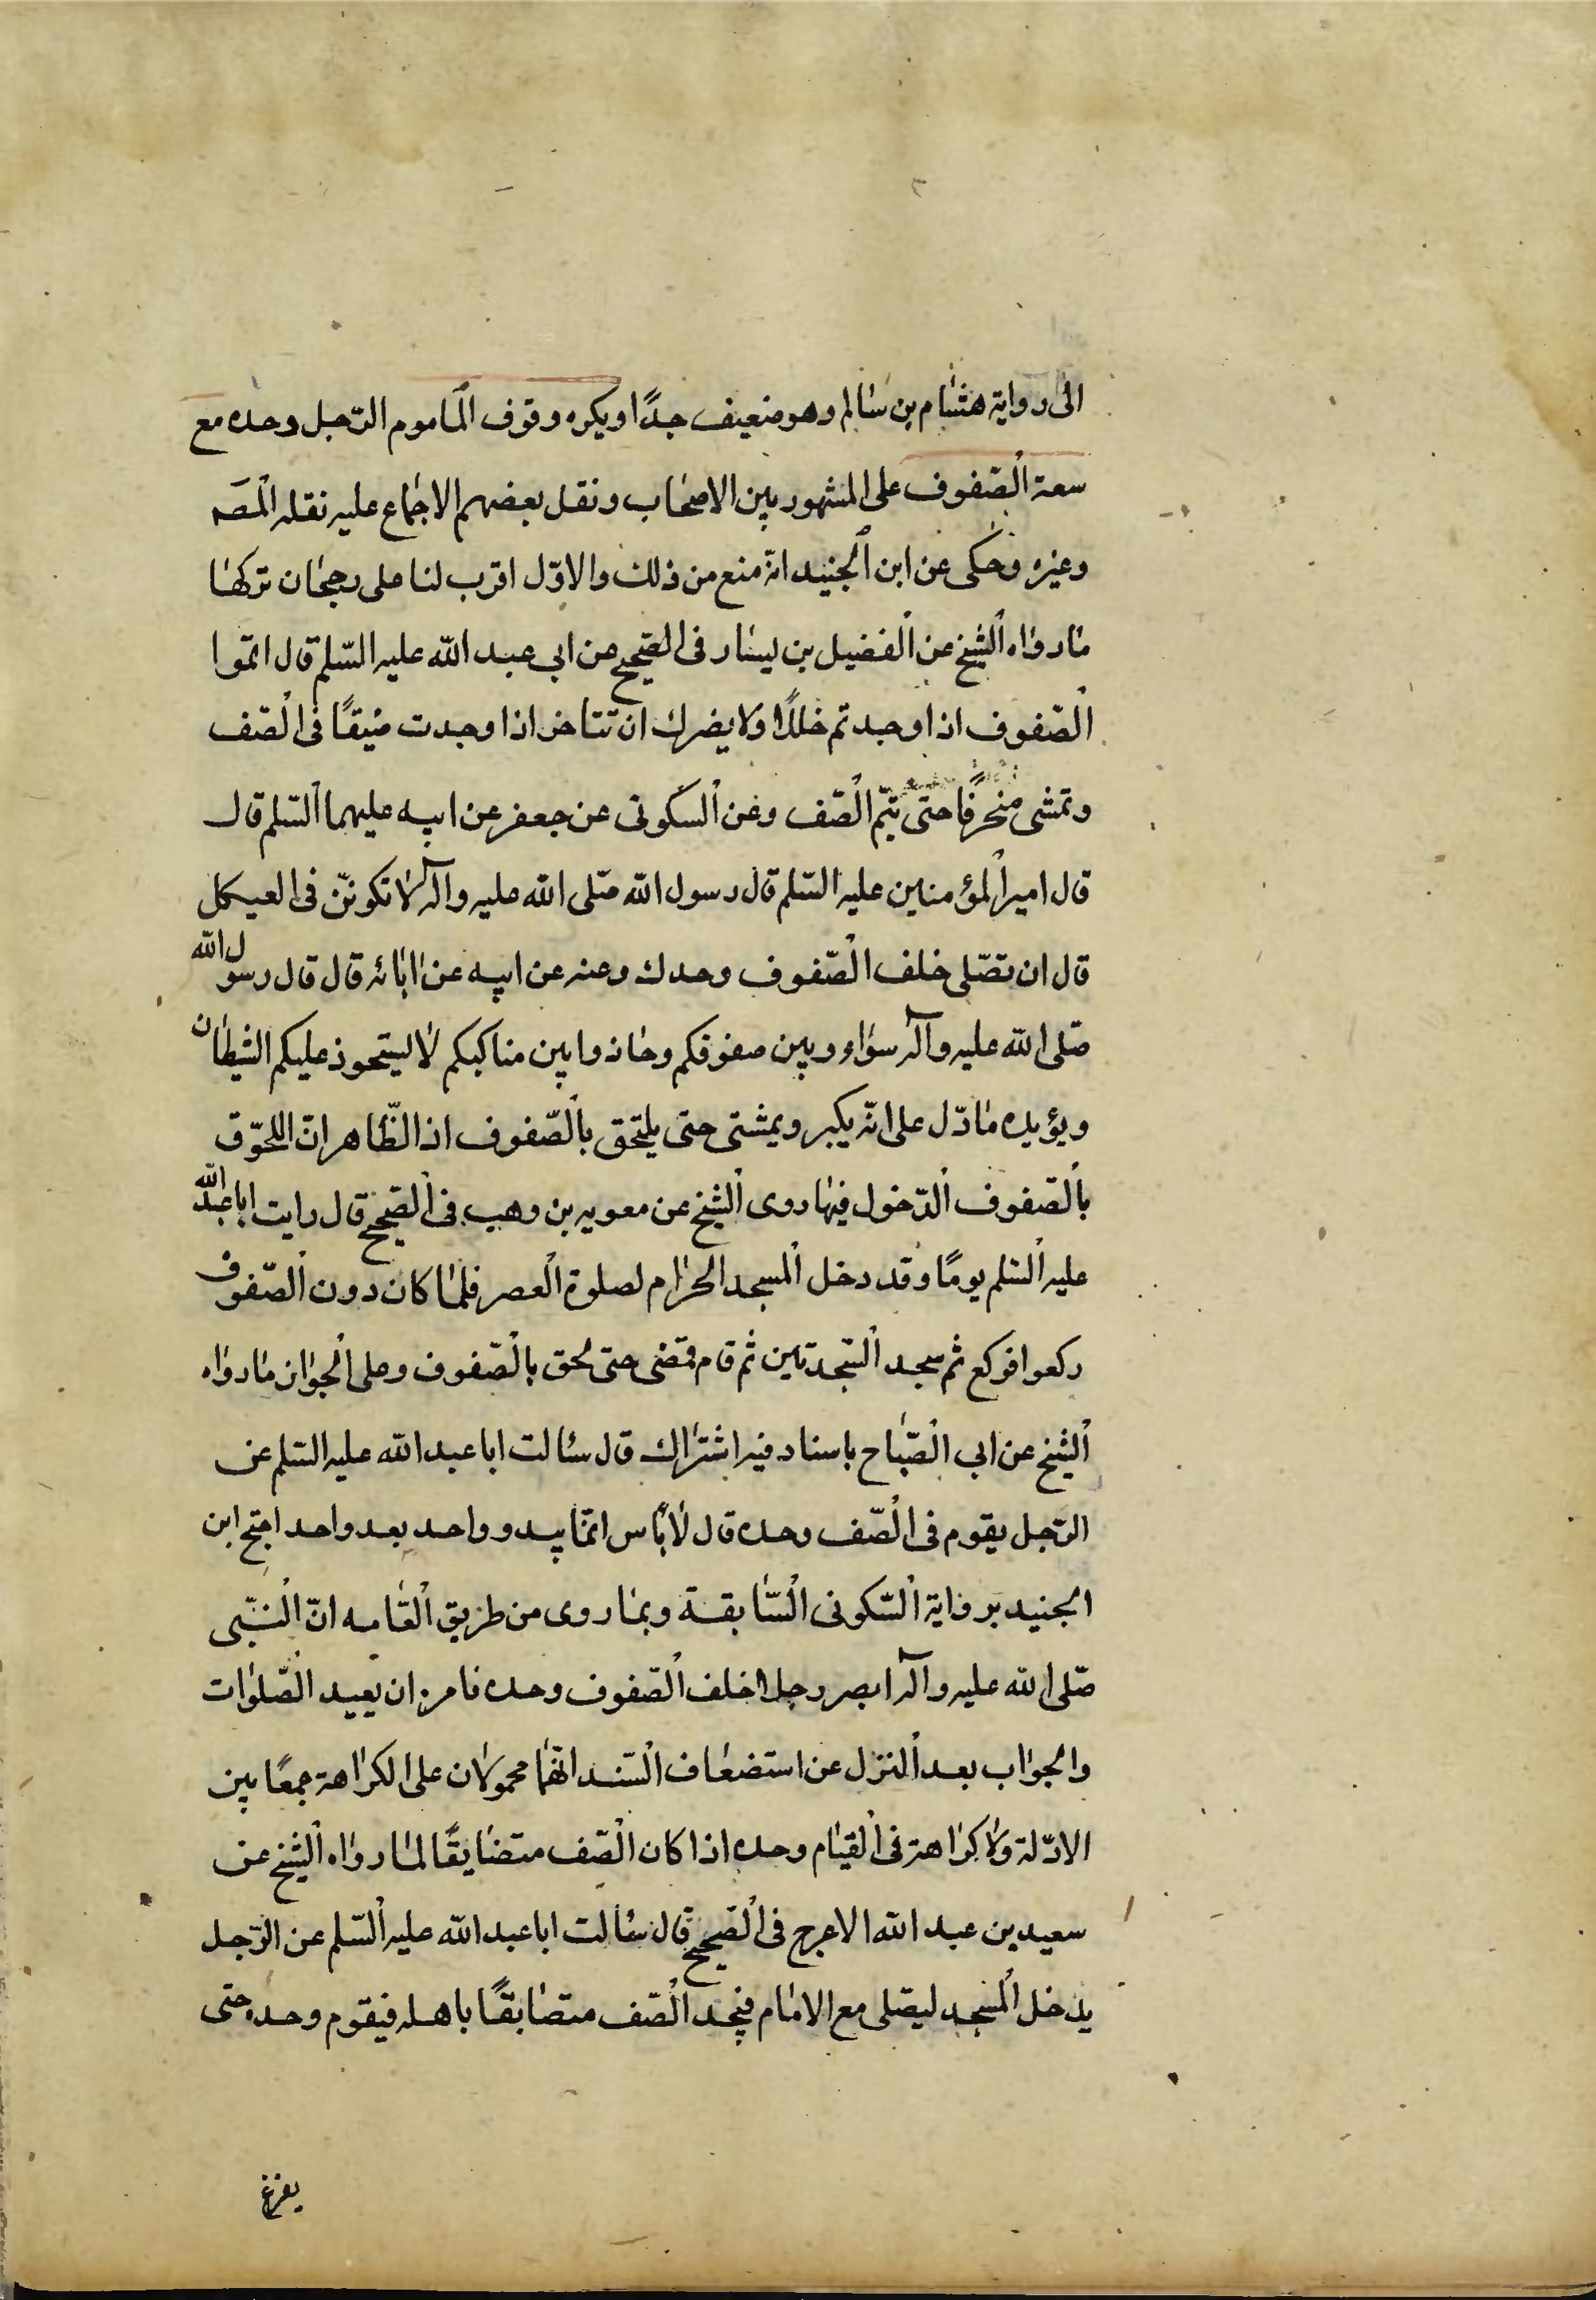 الى رواية هشام بن سالم وهو ضعيف جدًا ويكره وقوف المأموم الرّجل وحده مع
سعة الصّفوف على المشهور بين الاصحاب ونقل بعضهم الاجماع عليه نقله المصَه
وغيره وحكى عن ابن الجنيد انه منع من ذلك والاوّل اقرب لنا على رجحان تركها
ما رواه الشيخ عن الفضيل بن يسار فى الصّحيح عن ابى عبد الله عليه السّلم قال اتمّوا
الصّفوف اذا وجدتم خللًا ولا يضرك ان تتاخر اذا وجدت ضيقًا فى الصّف
وتمشى منحرفًا حتى تتمّ الصّف وعن السّكونى عن جعفر عن ابيه عليهما السّلم قال
قال امير المؤمنين عليه السّلم قال رسول الله صّلى الله عليه وآله لا تكوننّ فى العيكل
قال ان تصّلى خلف الصّفوف وحدك وعنه عن ابيه عن اٰبائه قال قال رسول الله
صّلى الله عليه وآله سوّاوو بين صفوفكم وحاذوا بين مناكبكم لا يستحوذ عليكم الشيطان
ويؤيده ما دّل على انّه يكبر ويمشتى حتى يلتحق بالصّفوف اذ الظّاهر انّ اللحوّق
بالصّفوف الدّخول فيها روى الشيخ عن معويه بن وهب فى الصّحيح قال رايت ابا عبد الله
عليه السّلم يومًا وقد دخل المسجد الحرام لصلوة العصر فلمّا كان دون الصّفوف
ركعوا فركع ثم سجد السّجدتين ثم قام فمضى حتى لحق بالصّفوف وعلى الجواز ما رواه
الشيخ عن ابى الصّباح باسناد فيه اشتراك قال سئالت ابا عبد الله عليه السّلم عن
الرّجل يقوم فى الصّف وحده قال لا بأس انّما يبدو واحد بعد واحد احتج ابن
الجنيد برواية السّكونى السّابقة وبما روى من طريق العّامه انّ النبّى
صّلى الله عليه وآله ابصر رجلا خلف الصّفوف وحده فامره ان يعيد الصّلوات
والجواب بعد النزل عن استضعاف السّند انّهما محمولان على الكراهة جمعًا بين
الادّلة ولا كراهة فى القيام وحده اذا كان الصّف متضايقًا لما رواه الشيخ عن
سعيد بن عبد الله الاعرج فى الصّحيح قال سئالت ابا عبد الله عليه السّلم عن الرّجل
يدخل المسجد ليصّلى مع الامام فيجد الصّف متضايقًا باهله فيقوم وحده حتى
يفرغ